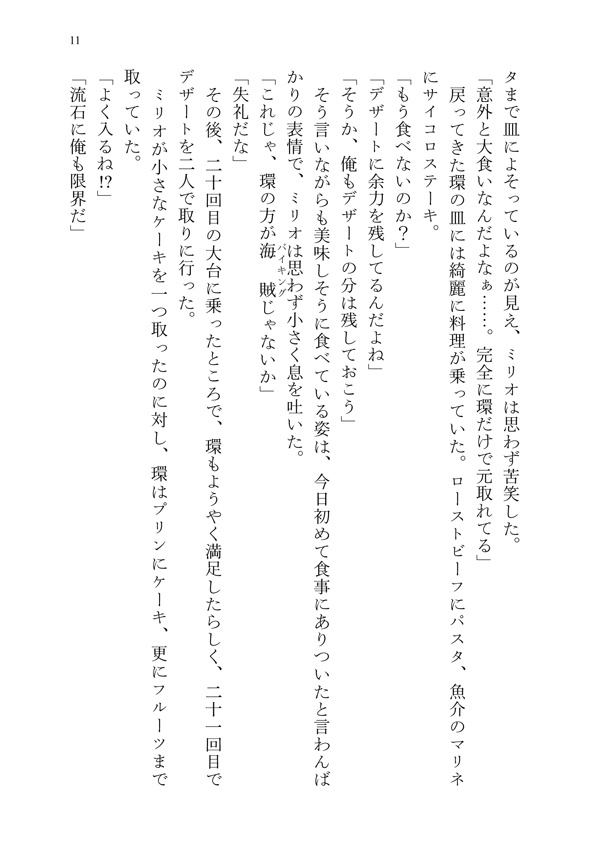 11
タまで皿によそっているのが見え、ミリオは思わず苦笑した。
「意外と大食いなんだよなぁ……。完全に環だけで元取れてる」
戻ってきた環の皿には綺麗に料理が乗っていた。ローストビーフにパスタ、魚介のマリネ
にサイコロステーキ。
「もう食べないのか?」
「デザートに余力を残してるんだよね」
「そうか、俺もデザートの分は残しておこう」
そう言いながらも美味しそうに食べている姿は、今日初めて食事にありついたと言わんば
かりの表情で、ミリオは思わず小さく息を吐いた。
バイキング
「これじゃ、環の方が海賊じゃないか」
「失礼だな」
その後、二十回目の大台に乗ったところで、環もようやく満足したらしく、二十一回目で
デザートを二人で取りに行った。
ミリオが小さなケーキを一つ取ったのに対し、環はプリンにケーキ、更にフルーツまで
取っていた。
「よく入るね!?」
「流石に俺も限界だ」